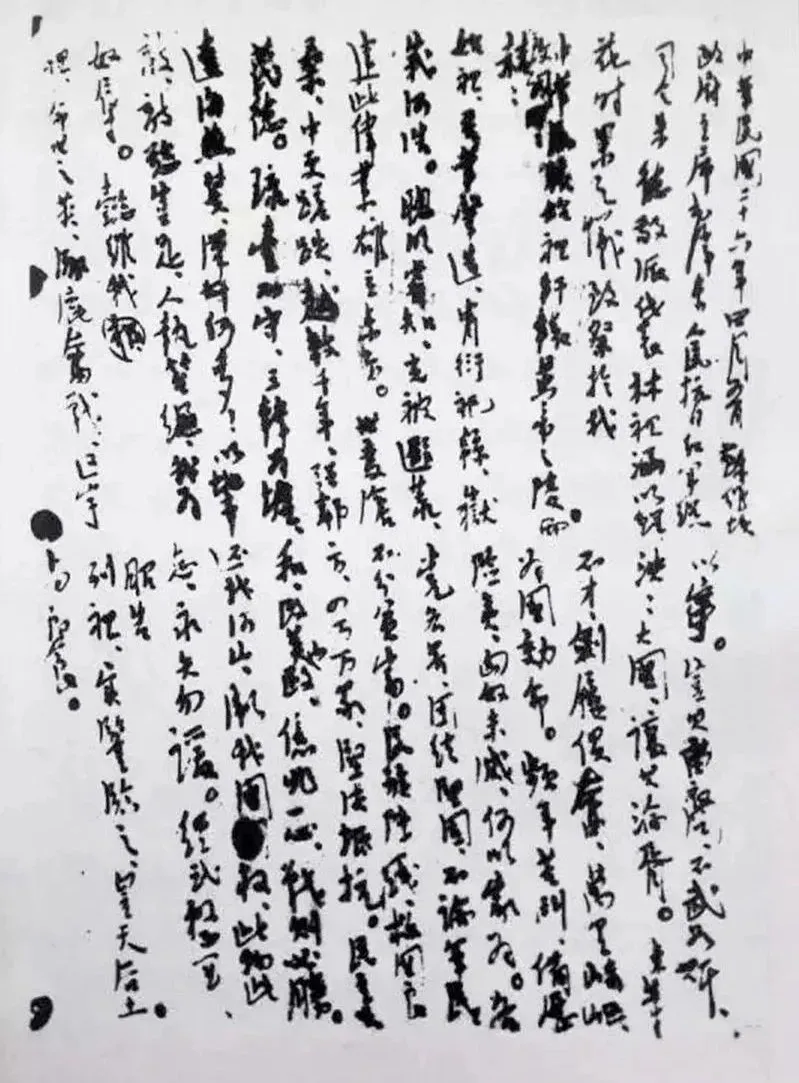 中華民國二十六年四月五日 蘇維埃
政府主席毛澤東人民抗日紅軍總
司令朱德敬派代表林祖涵以鮮
花时果之儀致祭於我
中華民族始祖軒轅黄帝之陵而
致词曰：
始祖、吾華肇造、胄衍祀綿、嶽
峩河浩。聰明睿知、光被遐荒、
建此偉業、雄立東方。世变滄
桑、中更蹉跌、越数千年、强鄰
蔑德。琉台不守、三韓为墟、
遼海燕冀、漢奸何多！以地事
敵、敵慾豈足、人執笞繩、我为
奴辱。懿維我
祖、命世之英、涿鹿奮戰、区宇
以寧。豈其苗裔、不武如斯、
泱泱大國、讓其淪胥。東等
不才、劍屨俱奮、萬里崎岖、
为國効命。頻年苦鬥、備歷
險夷、匈奴未滅、何以家为。各
党各界、团结堅固、不論軍民、
不分貧富。民族陣綫、救國良
方、四万万众、坚决抵抗。民主共
和、改革内政、億兆一心、戰則必勝。
还我河山、衛我國权、此物此
志、永矢勿諼。经武整军、
昭告
列祖、實鑒臨之、皇天后土。
尚饗。